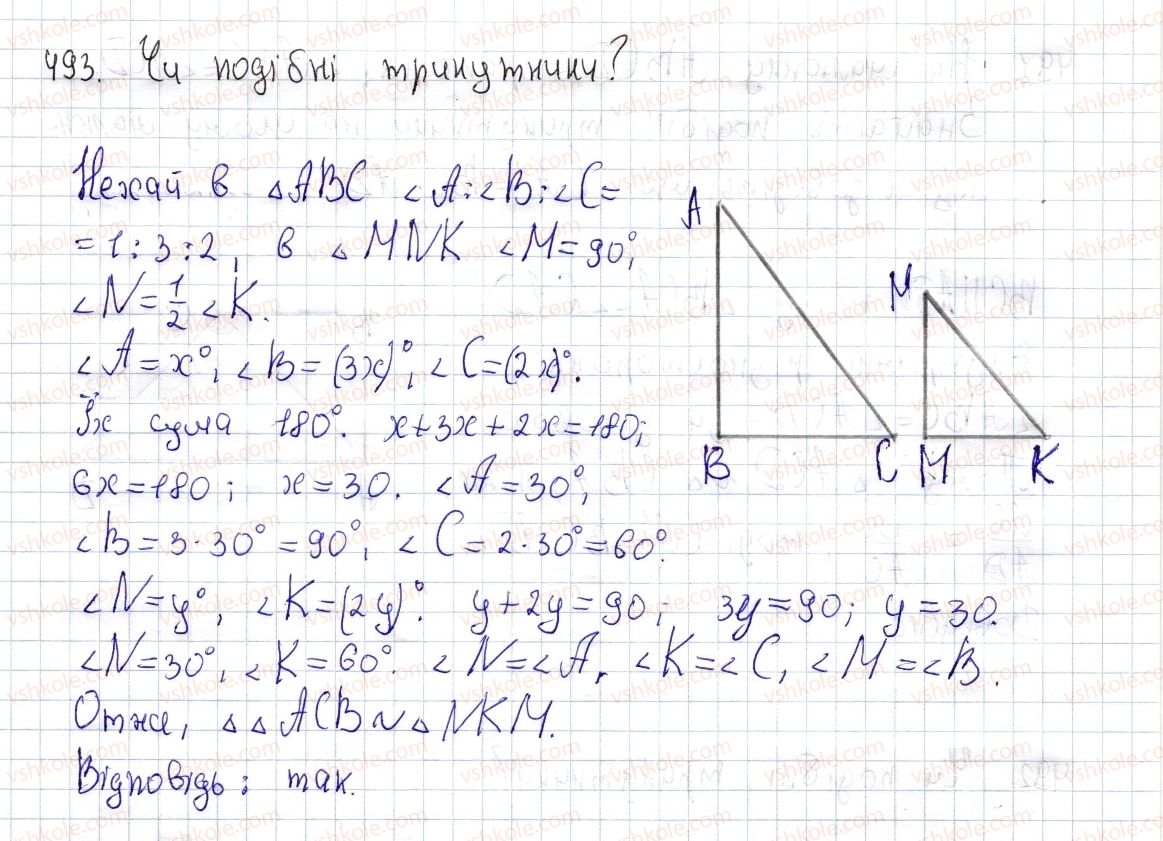 493. Чи подібні трикутники?
Нехай в △ABC ∠A:∠B:∠C=
=1:3:2, в △MNK ∠M=90°,
∠N=1/2∠K.
∠A=x°, ∠B=(3x)°, ∠C=(2x)°.
Їх сума 180°. x+3x+2x=180;
6x=180; x=30. ∠A=30°,
∠B=3·30°=90°, ∠C=2·30°=60°.
∠N=y°, ∠K=(2y)°. y+2y=90; 3y=90; y=30.
∠N=30°, ∠K=60°. ∠N=∠A, ∠K=∠C, ∠M=∠B.
Отже, △△ACB∾△NKM.
Відповідь: так.
A
B
C
N
M
K
vshkole.com